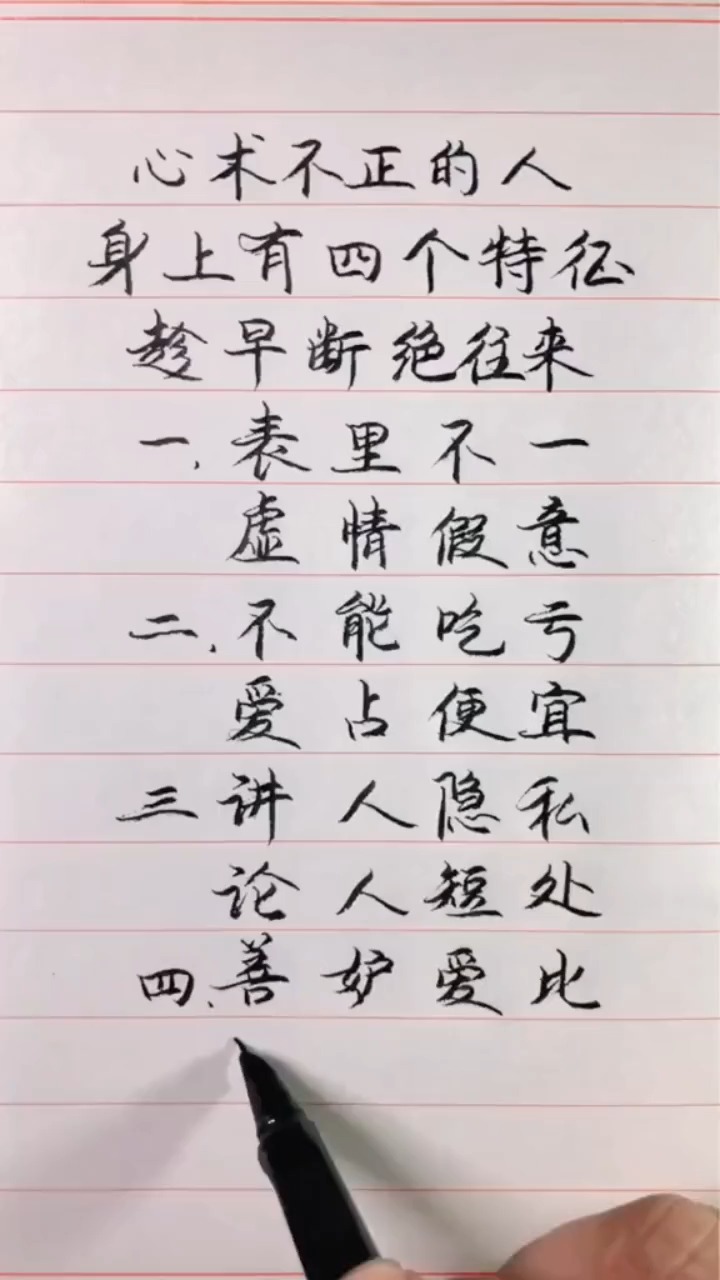 心术不正的人
身上有四个特征
趁早断绝往来
一、表里不一
虚情假意
二、不能吃亏
爱占便宜
三讲人隐私
论人短处
四、善妒爱比